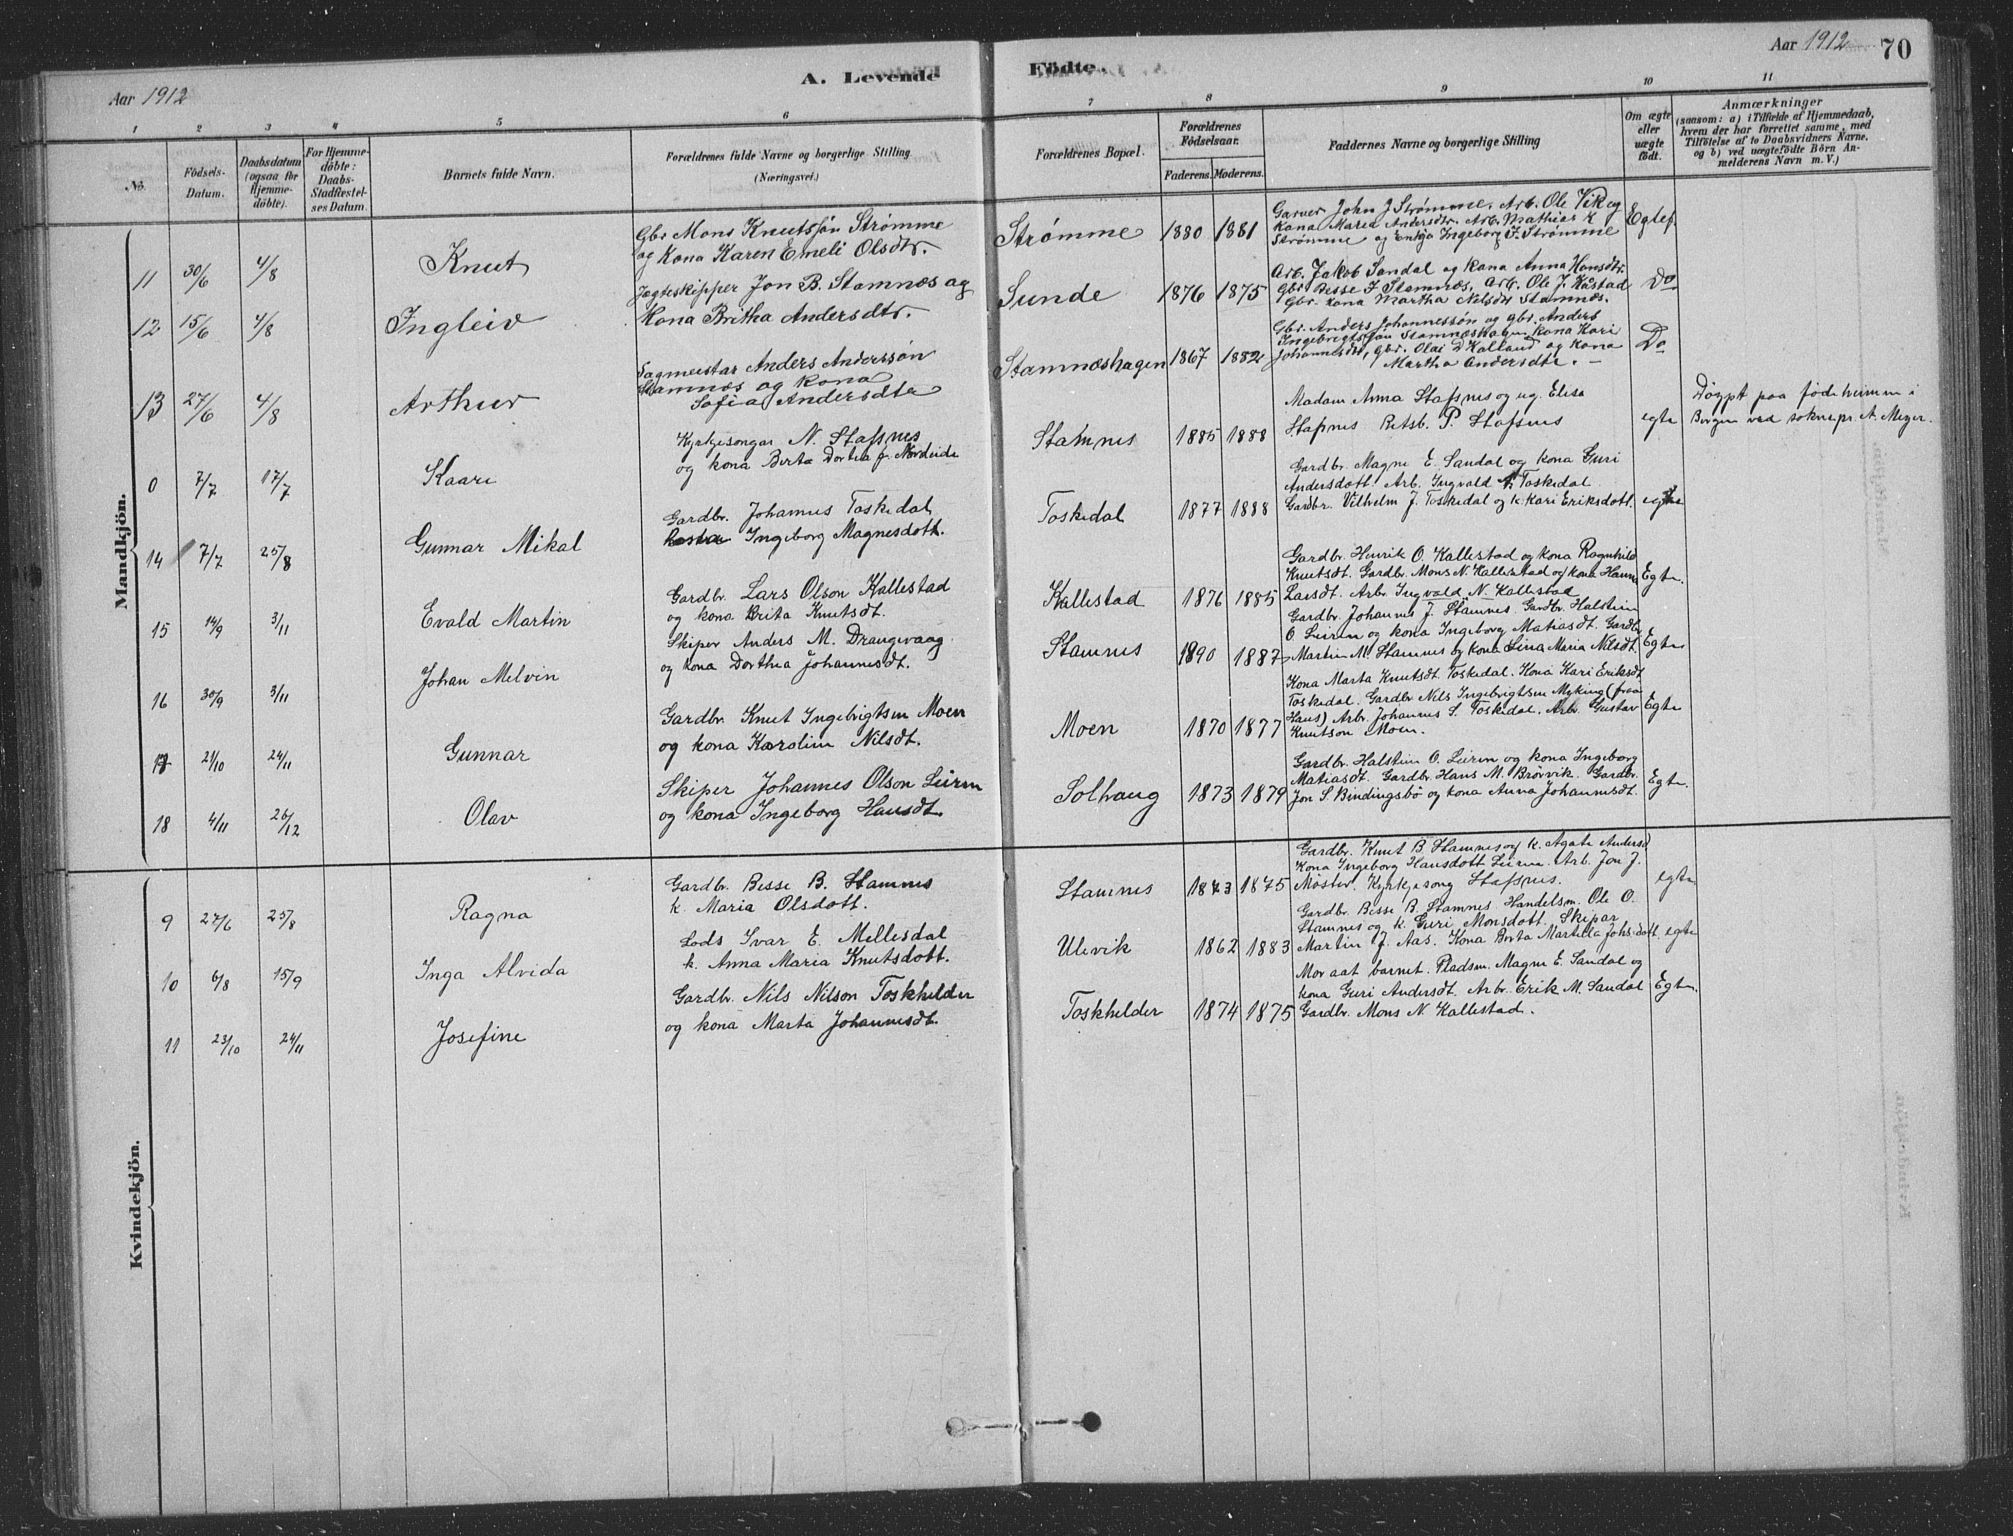 Aar 1912
A. Levende
Födte.
Aar 1912
70
1 2 3 4 5 6 7 8 9 10 11
No.
Födsels-
Datum.
Daabsdatum
(ogsaa for
Hjemme-
døbte).
For Hjemme-
döbte:
Daabs-
Stadfæstel-
ses Datum.
Barnets fulde Navn.
Forældrenes fulde Navne og borgerlige Stilling
(Næringsvei.)
Forældrenes Bopæl.
Forældrenes
Födselsaar.
Faderens. Moderens.
Faddernes Navne og borgerlige Stilling
Om ægte
eller
uægte
født.
Anmærkninger
(saasom: a) i Tilfælde af Hjemmedaab,
hvem der har forrettet samme, med
Tilføielse af to Daabsvidners Navne.
og b) ved uægtefödte Börn An-
melderens Navn m. V.)
Mandkjön.
11 30/6 4/8 Knut
Gbr Mons Knutssøn Strømme
og Kona Karen Emeli Olsdtr.
Strømme 1880 1881
Garver John J Strømme, Arb. Ole Vik og
Kona Maria Andersdtr. Arb. Mathias K
Strømme og Enkja Ingeborg J. Strømme
Egtef.
12 15/6 4/8 Ingleiv
Jægteskipper Jon B. Stamnæs og
Kona Britha Andersdtr.
Sunde 1876 1875
Arb. Jakob Sandal og Kona Anna Hansdtr.
Gbr. Besse J Stamnæs, Arb. Ole J. Kastad
Gbr. Kona Martha Nilsdt Stamnæs.
Do
13 27/6 4/8 Arthur
Sagmeistar Anders Anderssøn
Stamnæs og kona
Sofia Andersdtr
Stamnæshagen 1867 1882
Gbr. Anders Johannessøn og gbr. Anders
Ingebrigtssøn Stamnæshagen, kona Kari
Johannesdt, gbr. Olai D Kalland og kona
Martha Andersdtr. —
Do
0 7/7 17/7 Kaare
Kyrkjesongar N. Stafsnes
og kona Berta Dortea f. Nordeide
Stamnes 1885 1888
Madam Anna Stafsnes og ug. Elisa
Stafsnes Retsb. P. Stafsnes
egte
Døypt paa fødeheimen i
Bergen ved soknepr. A. Meyer.
14 7/7 25/8 Gunnar Mikal
Gardbr. Johannes Toskedal
Ingeborg Magnesdott.
Toskedal 1877 1888
Gardbr. Magne E. Sandal og kona Guri
Andersdott. Arb. Ingvald A. Toskedal
Gardbr. Vilhelm J. Toskedal og k. Kari Eriksdott.
egte
15 14/9 3/11 Evald Martin
Gardbr. Lars Olson Kallestad
og kona Brita Knutsdt.
Kallestad 1876 1885
Gardbr. Henrik O. Kallestad og kona Ragnhild
Knutsdt. Gardbr. Mons N. Kallestad og kona Hanna
Larsdt. Arbr. Ingvald N. Kallestad
Egte.
16 30/9 3/11 Johan Melvin
Skiper Anders M. Drangevaag
og kona Dorthea Johannesdt.
Stamnes 1890 1887
Gardbr. Johannes J. Stamnes. Gardbr. Halstein
O. Leiren og kona Ingeborg Matiasdt. Gardbr.
Martin M. Stamnes og kona Lina Maria Nilsdt.
Egte
17 21/10 24/11 Gunnar
Gardbr. Knut Ingebrigtsen Moen
og kona Karoline Nilsdt.
Moen 1870 1877
Kona Marta Knutsdt. Toskedal. Kona Kari Eriksdt.
Toskedal. Gardbr. Nils Ingebrigtsen Myking (fraa
Haus) Arbr. Johannes S. Toskedal. Arb. Gustav
Knutson Moen.
Egte
18 4/11 26/12 Olav
Skiper Johannes Olson Leiren
og kona Ingeborg Hansdt.
Solhaug 1873 1879
Gardbr. Halstein O. Leiren og kona Ingeborg
Matiasdt. Gardbr. Hans M. Brørvik. Gardbr.
Jon S. Bindingsbø og kona Anna Johannesdt.
Egte.
Kvindekjön.
9 27/6 25/8 Ragna
Gardbr. Besse B. Stamnes
k. Maria Olsdott.
Stamnes 1873 1875
Gardbr. Knut B. Stamnes og k. Agate Andersd
Kona Ingeborg Hansdott Leiren. Arb. Jon J.
Moster. Kyrkjesong Stafsnes.
egte
10 6/8 15/9 Inga Alvida
Lods Ivar E. Mellesdal
k. Anna Maria Knutsdott.
Ulevik 1862 1883
Gardbr. Besse B. Stamnes. Handelsm. Ole O.
Stamnes og k. Guri Monsdott. Skipar
Martin J. Aas. Kona Berta Martella Johsdott.
egte
11 23/10 24/11 Josefine
Gardbr. Nils Nilson Toskhelder
og kona Marta Johannesdt.
Toskhelder 1874 1875
Mor aat barnet. Pladsm. Magne E. Sandal og
kona Guri Andersdt. Arbr. Erik M. Sandal
Gardbr. Mons N. Kallestad.
Egte.